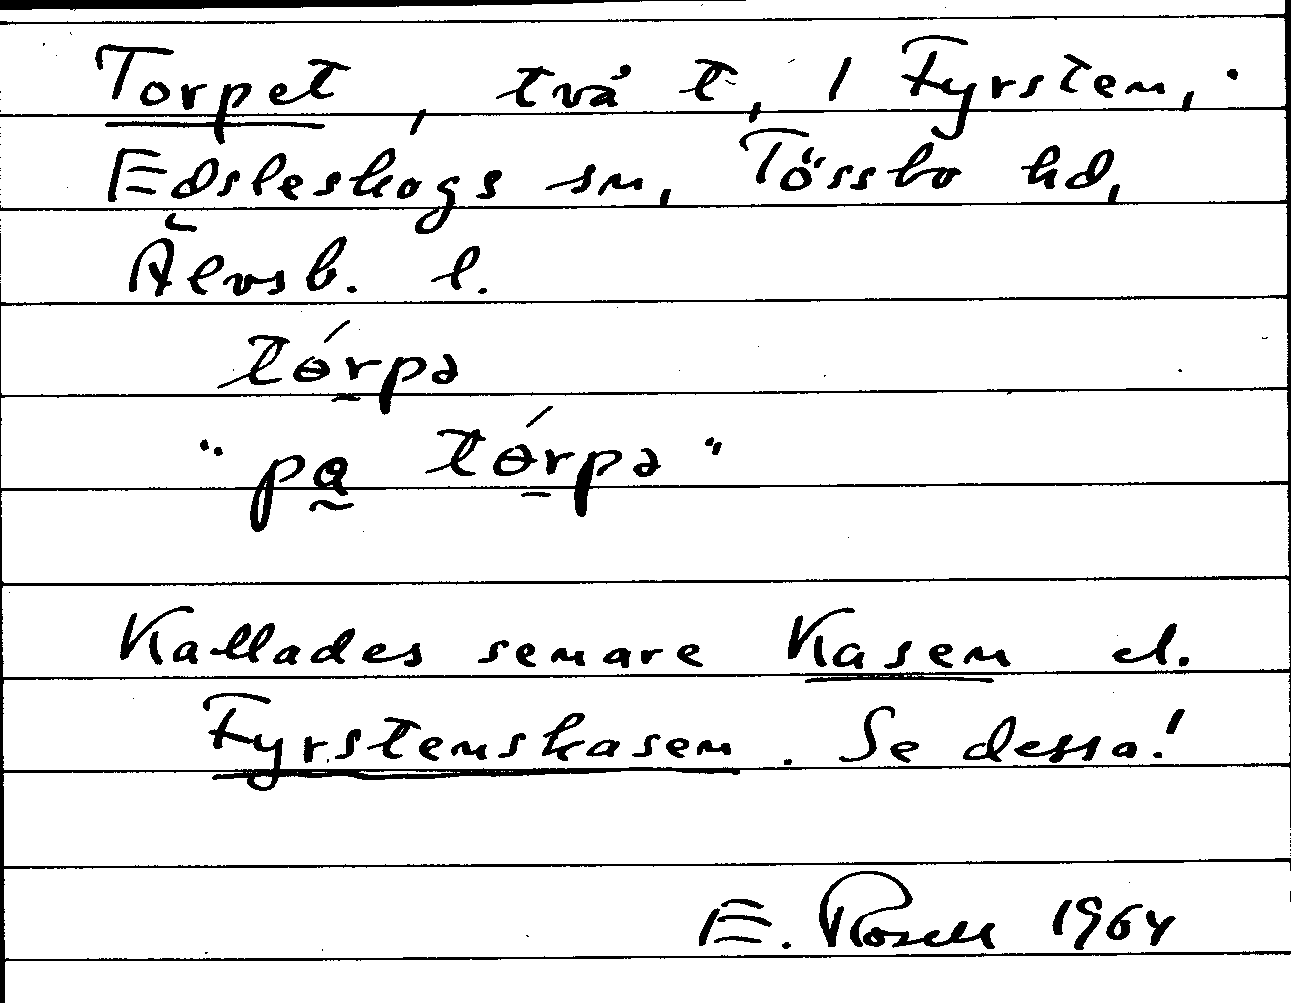 Torpet, två t, 1 Fyrsten,
Edsleskogs sn, Tössbo hd,
Älvsb. l.
tɵ́r̠pə
"pa̰ tɵ́r̠pə"
Kallades senare Kasen el.
Fyrstenskasen. Se dessa!
E. Rosell 1964